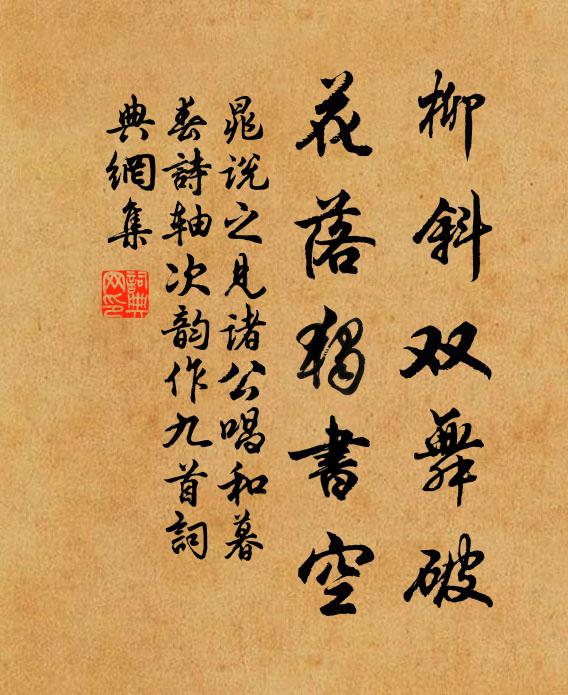 柳斜双舞破
花落独書空
晁说之見诸公唱和暮
春詩轴次韵作九首詞
典網集
詞典网印